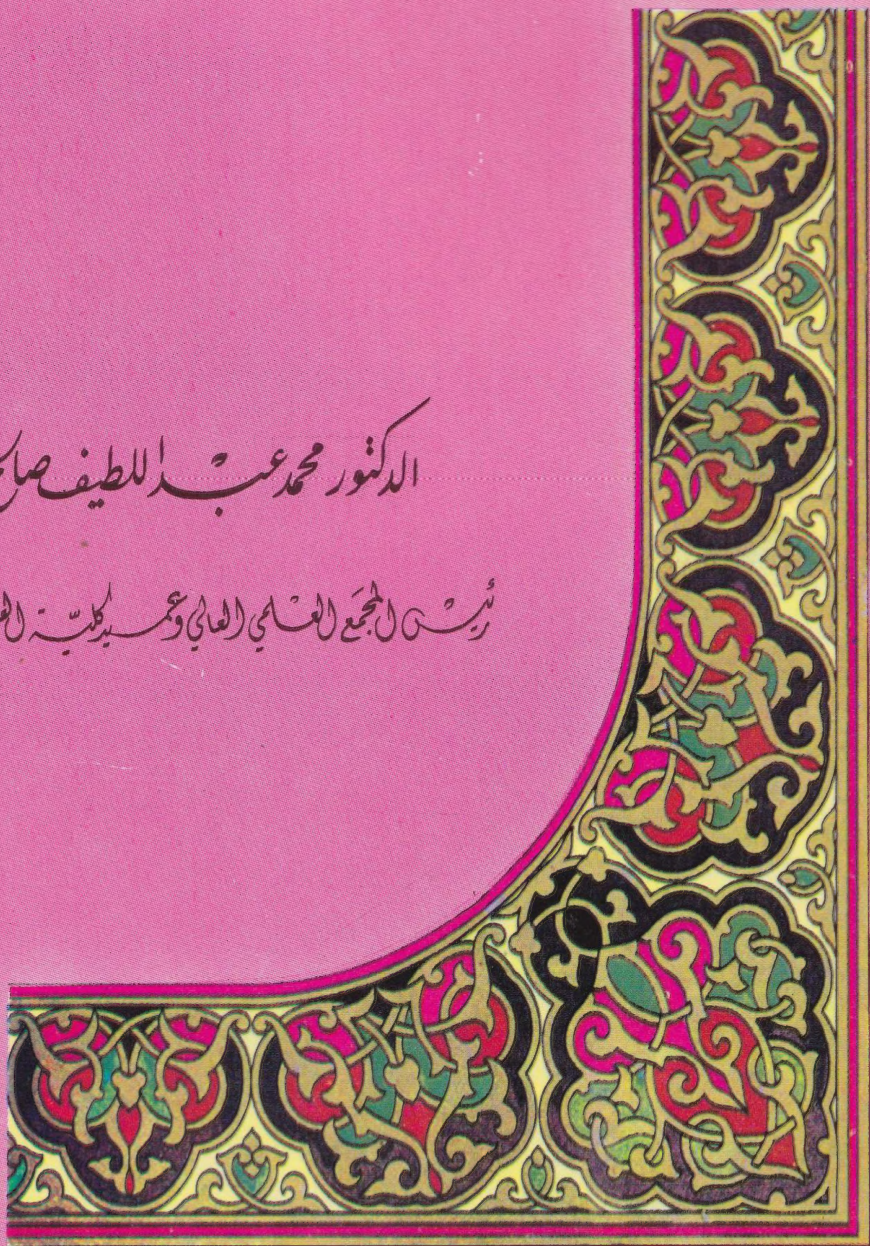 الدكتور محمد عبد اللطيف صالح
رئيس المجمع العلمي العالي وعميد كلية